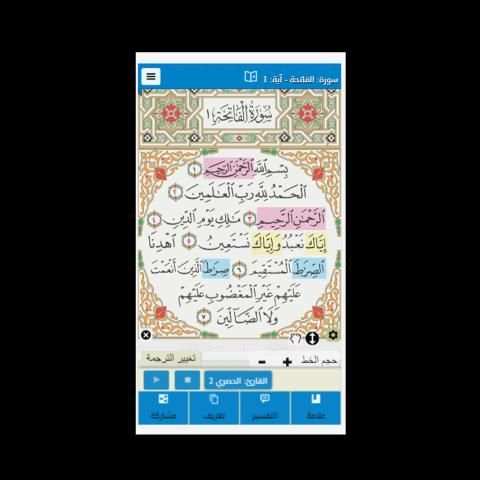 سورة: الفاتحة - آية: 1
سُورَةُ الْفَاتِحَةِ
بِسْمِ اللَّهِ الرَّحْمَٰنِ الرَّحِيمِ ١
الْحَمْدُ لِلَّهِ رَبِّ الْعَالَمِينَ ٢
الرَّحْمَٰنِ الرَّحِيمِ ٣ مَالِكِ يَوْمِ الدِّينِ ٤
إِيَّاكَ نَعْبُدُ وَإِيَّاكَ نَسْتَعِينُ ٥ اهْدِنَا
الصِّرَاطَ الْمُسْتَقِيمَ ٦ صِرَاطَ الَّذِينَ أَنْعَمْتَ
عَلَيْهِمْ غَيْرِ الْمَغْضُوبِ عَلَيْهِمْ
وَلَا الضَّالِّينَ ٧
حجم الخط + - تغيير الترجمة
القارئ: الحصري 2
علامة التفسير تعريف مشاركة